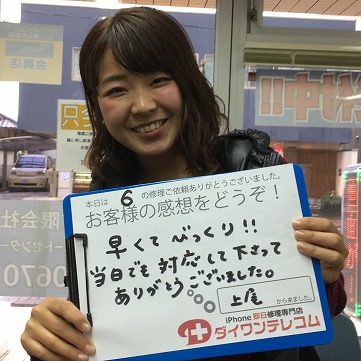 本日は 6 の修理ご依頼ありがとうございました。
お客様の感想をどうぞ!
早くてびっくり!!
当日でも対応して下さって
ありがとうございました。
上尾
から来ました。
iPhone 即日修理専門店
ダイワンテレコム
会員店
有限会社
ートセンター
0670